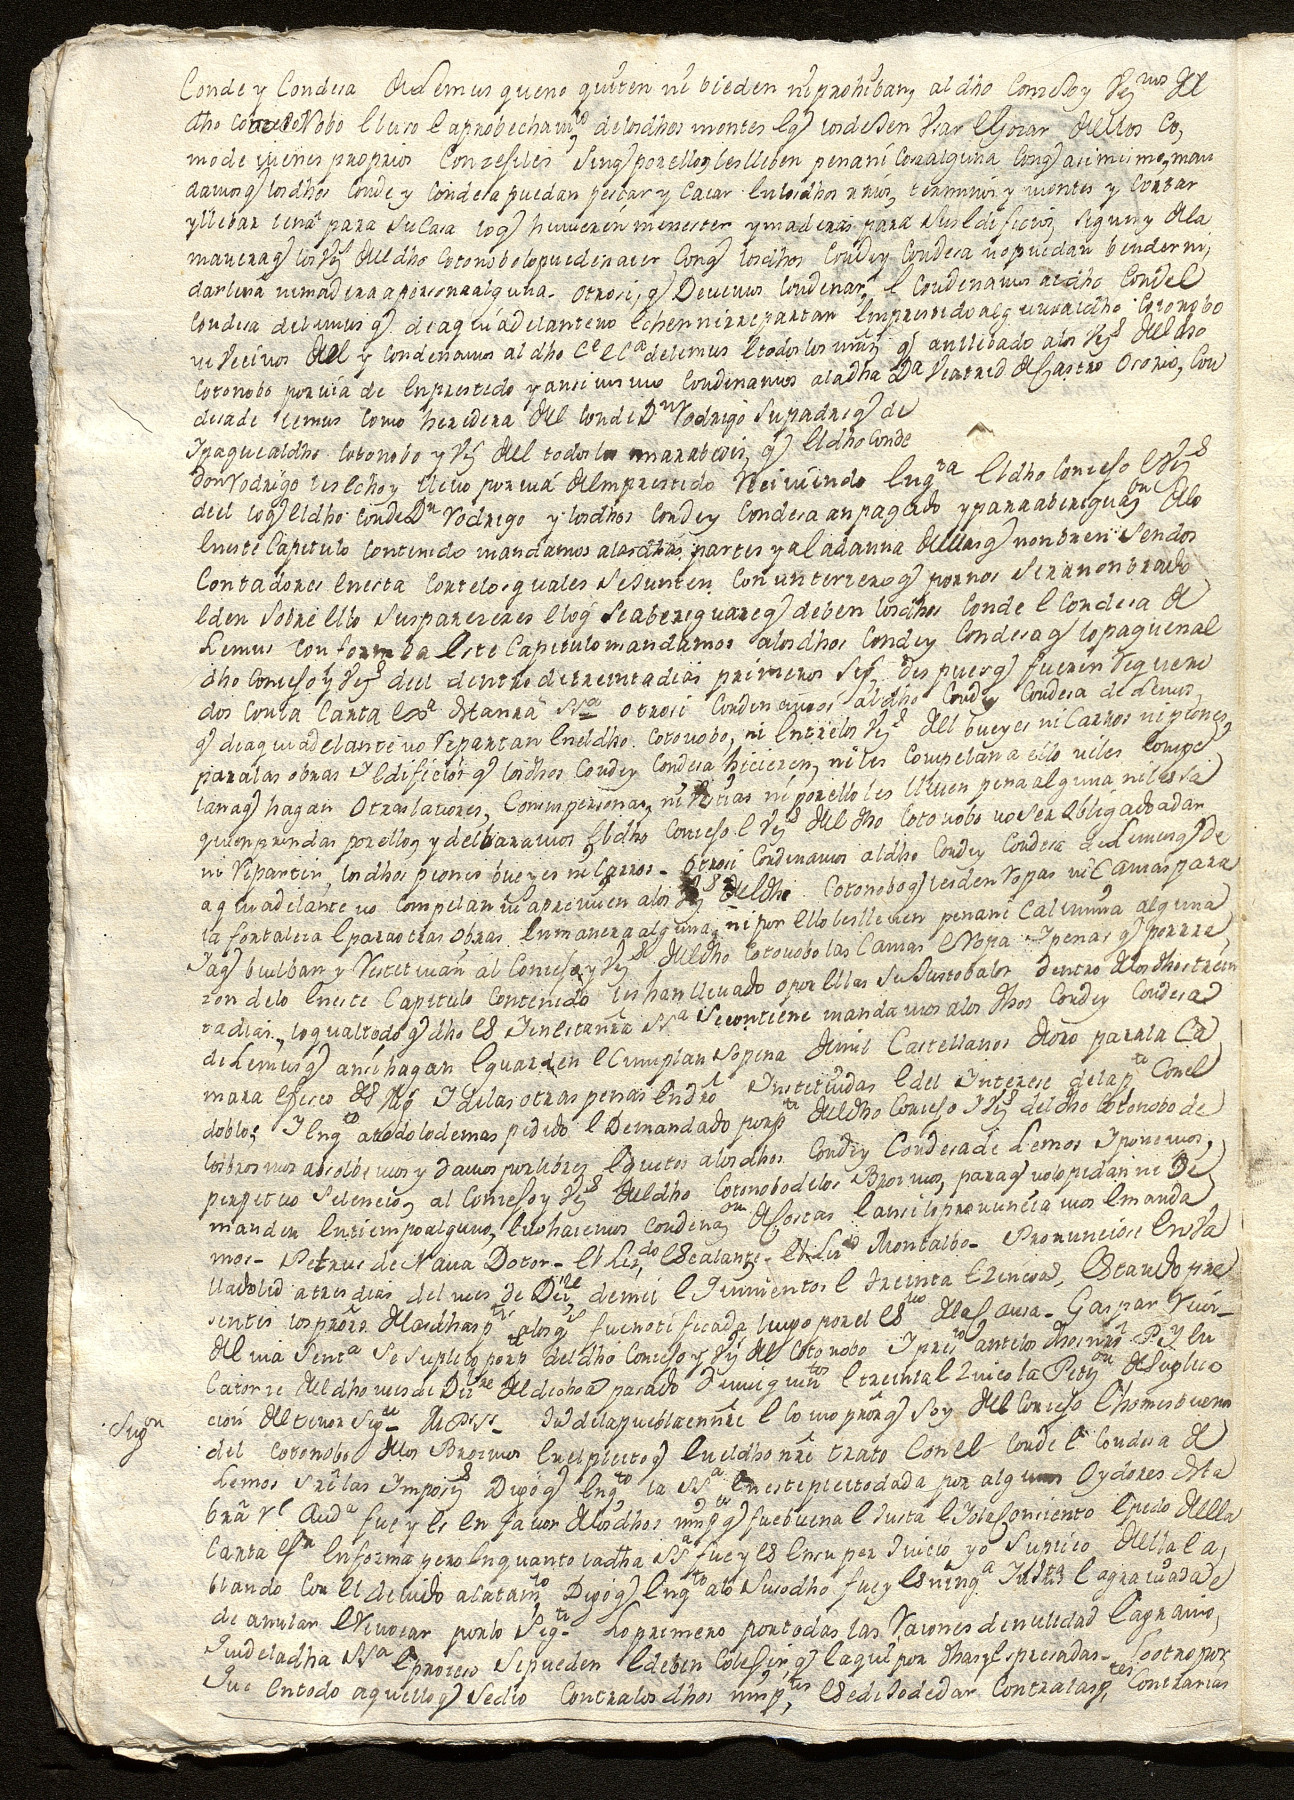 Conde y Condesa de Lemus que no quiten ni bieden ni prohiban, al dho Conzejo y Vznos del
dho Coto Nobo el uso e aprobechamto de los dhos montes e q los dejen Vsar e Gozar dellos Co,
mo de vienes propios Conzejiles sin q por ello, les lleben pena ni Cosa alguna Con q asimismo, man
damos q los dhos Conde y Condesa puedan pescar y Caçar En los dhos rrios, terminos y montes y Cortar
y llebar lena para su Casa lo q huvieren menester y madera para sus Edificios, segun y de la
manera q los Vzs del dho Cotonobo lo pueden açer Con q los dhos Conde y Condesa no puedan bender ni,
dar lena ni madera a persona alguna. Otrosi, q Devemos Condenar, e Condenamos al dho Conde E
Condesa de Lemus q de aqui adelante no Echen ni rrepartan Emprestido alguno al dho Cotonobo
ni Vecinos del y Condenamos al dho Ce e Ca de Lemus E todos los mrs q an llebado a los Vzs del dho
Cotonobo por via de Enprestido y ansi mismo Condenamos a la dha Da Veatriz de Castro Osorio, Con
desa de Lemus como heredera del Conde Dn Rodrigo Su padre q de
I pague al dho Cotonobo y Vzs del todos los marabedis, q El dho Conde
Don Rodrigo les Echo y llebo por via de Emprestido Reciviendo En qta El dho Conçejo e Vzs
del lo q El dho Conde Dn Rodrigo y los dhos Conde y Condesa an pagado y para aberiguaon de lo
En este Capitulo Contenido mandamos a las dhas partes y a Cada una dellas q nonbren Sendos
Contadores En esta Corte los quales se Junten Con un terzero q por nos sera nonbrado
E den sobre Ello sus pareceres E lo q se aberiguare q deben los dhos Conde E Condesa de
Lemus Conforme a Este Capitulo mandamos a los dhos Conde y Condesa q lo paguen al
dho Conçejo y Vzs del dentro de treinta dias primeros Sigs despues q fueren Requeri
dos Con la Carta exa de la nra Sa Otrosi Condenamos al dho Conde y Condesa de Lemus,
q de aqui adelante no Repartan En el dho Cotonobo, ni Entre los Vzs del bueyes ni Carros ni piones,
para las obras I Edificios q los dhos Conde y Condesa hicieren, ni les Compelan a ello ni les Compe
lan a q hagan Otras labores, Con sus personas, ni Vestias ni por ello les lleven pena alguna ni les sa
quen prendas por ello, y declaramos El dho Conçejo E Vzs del dho Cotonobo no ser obligado a dar
ni Repartir, los dhos piones bueyes ni Carros. Otrosi Condenamos al dho Conde y Condesa de Lemus q de
aqui adelante no Compelan ni apremien a los Vzs del dho Cotonobo q les den Ropas ni Camas para
la fortaleza E para otras obras En manera alguna, ni por Ello les lleven pena ni Calunnia alguna
I a q buelban y Restituian al Conçejo y Vzs del dho Cotonobo las Camas E Ropa I penas q por rra
zon de lo En este Capitulo Contenido les han llevado o por Ellas su Justo balor dentro de los dhos trein
ta dias, lo qual todo q dho es I en esta nra Sa se contiene mandamos a los dhos Conde y Condesa
de Lemus q ansi hagan E guarden E Cumplan so pena de mil Castellanos de oro para la Ca
mara E fisco de S Mg I de las otras penas En dro Instituidas E del Interese de la pte Con el
doblo, I En qto a todo lo demas pedido E Demandado por pte del dho Conçejo I Vzs del dho Cotonobo de
los brosmos absolbemos y damos por libres E quitos a los dhos Conde y Condesa de Lemos I ponemos,
perpetuo Silencio, al Conçejo y Vzs del dho Cotonobo de los Brosmos, para q no lo pidan ni De
manden En tiempo alguno, E no hacemos Condenaon de Costas E ansi lo pronunciamos E manda
mos. Petrus de Nava Dotor. El Lizdo Escalante. El Lizdo Montalbo. Pronunciose En Va
lladolid a tres dias del mes de Dizre de mil E quinientos E treinta E Zinco as, Estando pre
sentes los prores de las dhas ptes a los qs fue notificada luego por el Esno de la Causa. Gaspar Ruiz.
de la qa Senta Se suplico por pte del dho Conçejo y Vzs del Cotonobo I preso ante los dhos nros P I En
Catorze del dho mes de Dizre del dicho a pasado de mill quintos E treinta E zinco la Petion de Suplica
cion del tenor Sigte M P SS. Ju de la puebla en nre E Como pror q soy del Conçejo E homes buenos
Supon
del Cotonobo de los Brosmos En el pleito q En el dho nre trato Con el Conde E Condesa de
Lemos sre las Imposs Digo q En qto la Sa En este pleito dada por algunos Oydores de la
bra rl Auda fue y Es En favor de los dhos mis ptes q fue buena E Justa E Io la Consiento E pido della
Carta Exa En forma pero En quanto la dha Sa fue y Es En su perJuicio yo Suplico della E a,
blando Con El debido acatamto Digo q En qto a lo Susodho fue y Es ninga InJusta E agraviada E
de anular E Revocar por lo Sigte Lo primero por todas las Razones de nulidad E agravio,
q de la dha Sa E proceso se pueden E deben Colegir q E aqui por dhas y Espresadas. Lo otro por
que En todo aquello q Se dio Contra los dhos mis ptes, Es e dijo de dar Contra las ptes Contrarias